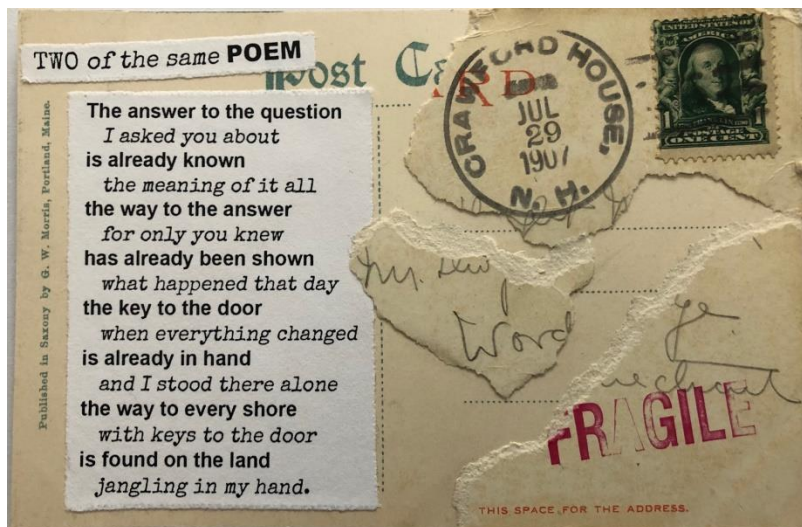 TWO of the same POEM
Post Ca
ARD
The answer to the question
I asked you about
is already known
the meaning of it all
the way to the answer
for only you knew
has already been shown
what happened that day
the key to the door
when everything changed
is already in hand
and I stood there alone
the way to every shore
with keys to the door
is found on the land
jangling in my hand.
Published in Saxony by G. W. Morris, Portland, Maine.
CRAWFORD HOUSE,
JUL
29
1907
N. H.
UNITED STATES OF
AMERICA
1 1
POSTAGE
ONE CENT
Word
FRAGILE
THIS SPACE FOR THE ADDRESS.